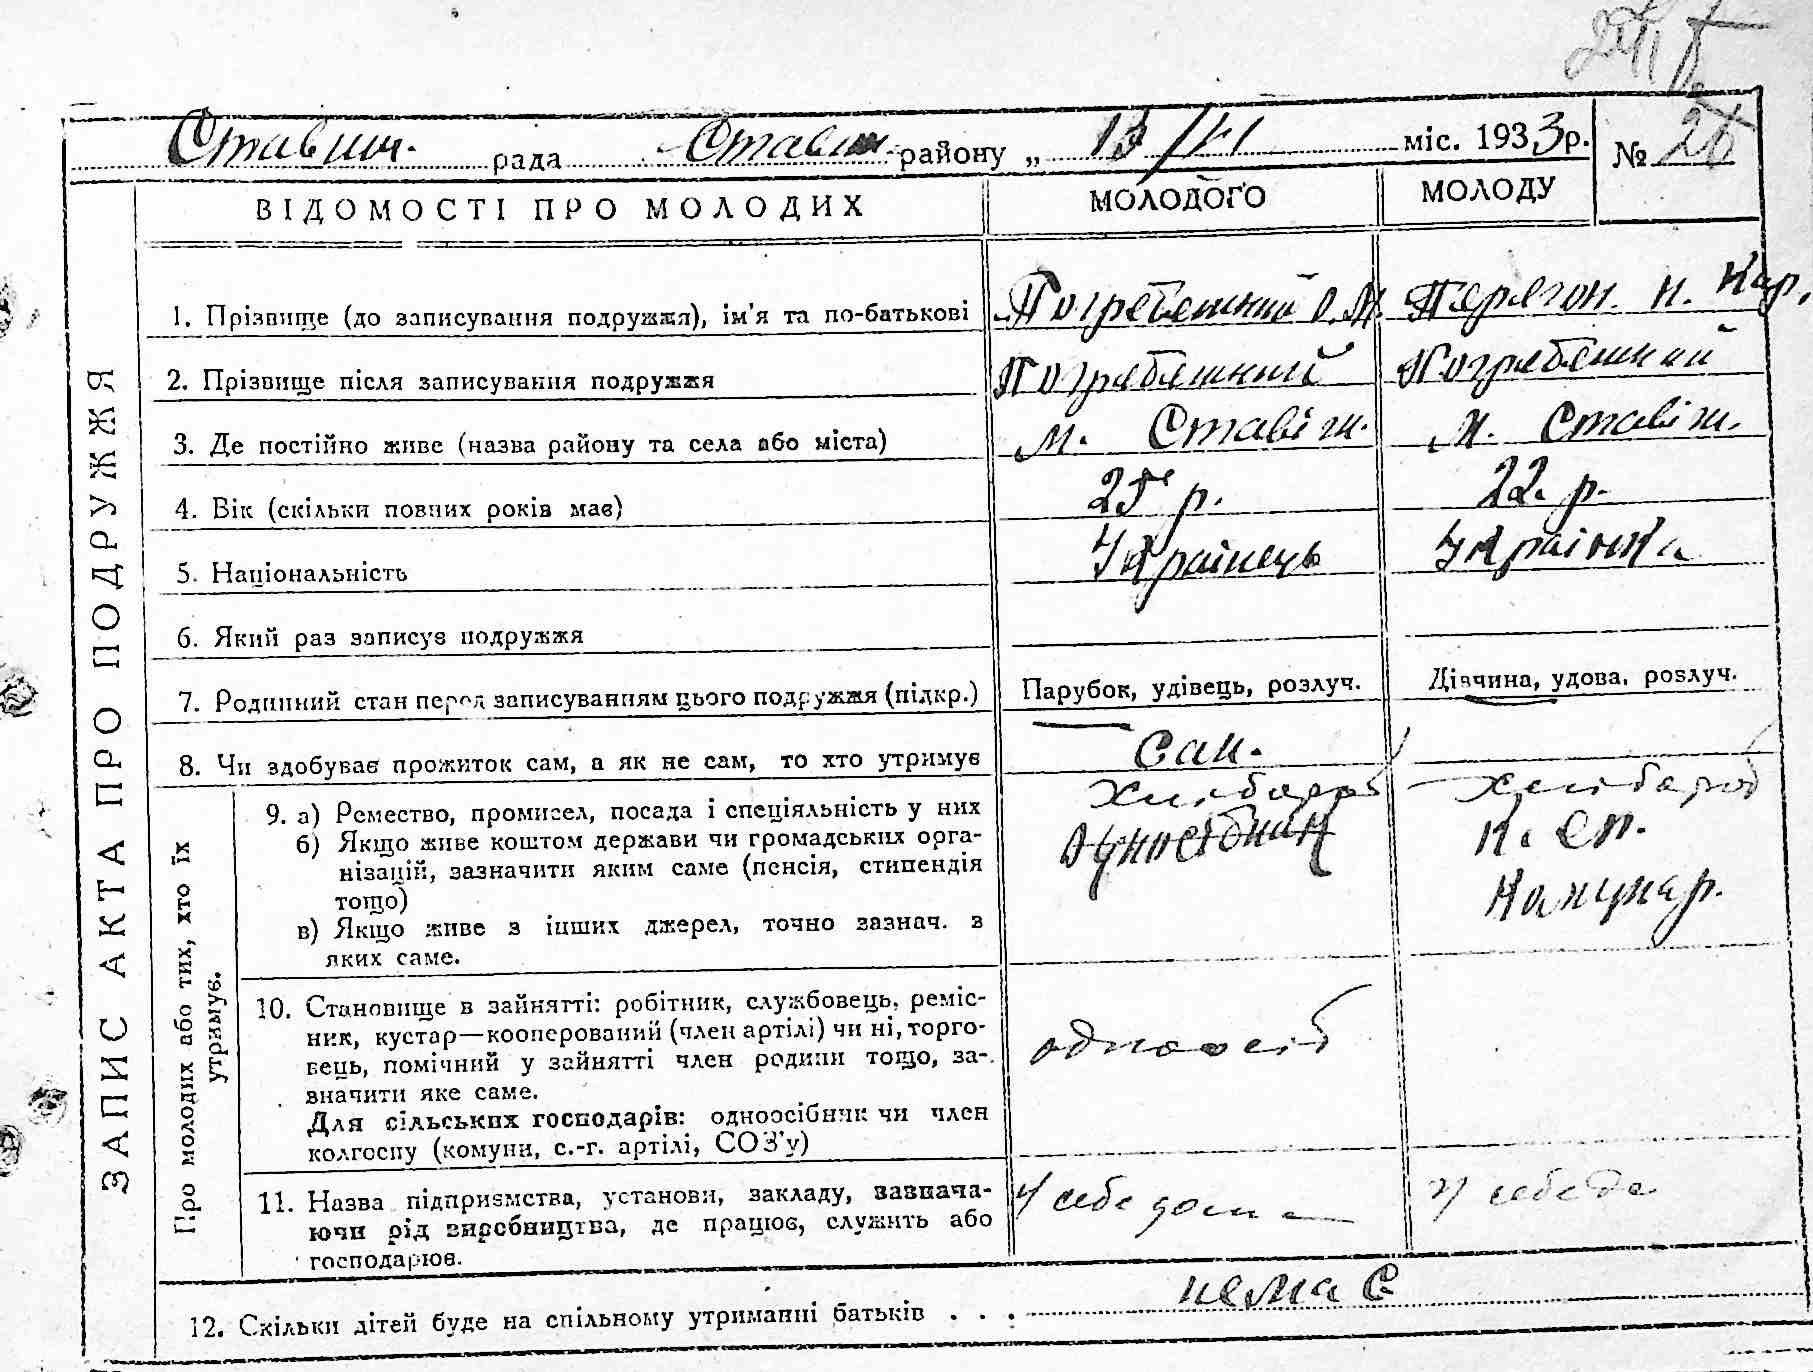 Ставищ. рада Став району „ 13/VI міс. 1933 р. № 26
ЗАПИС АКТА ПРО ПОДРУЖЖЯ
ВІДОМОСТІ ПРО МОЛОДИХ МОЛОДОГО МОЛОДУ
1. Прізвище (до записування подружжя), ім'я та по-батькові Погребешний О. М. Перегон. Н. Кар.
2. Прізвище після записування подружжя Погребешний Погребешний
3. Де постійно живе (назва району та села або міста) м. Ставіщ. м. Ставіщ.
4. Вік (скільки повних років має) 25 р. 22. р.
5. Національність Українець Українка
6. Який раз записує подружжя
7. Родинний стан перед записуванням цього подружжя (підкр.) Парубок, удівець, розлуч. Дівчина, удова, розлуч.
8. Чи здобуває прожиток сам, а як не сам, то хто утримує Сам.
Про молодих або тих, хто їх утримує.
9. а) Ремество, промисел, посада і спеціяльність у них Хлібороб Хлібороб
б) Якщо живе коштом держави чи громадських орга-
нізацій, зазначити яким саме (пенсія, стипендія
тощо)
в) Якщо живе з інших джерел, точно зазнач. з
яких саме.
10. Становище в зайнятті: робітник, службовець, реміс-
ник, кустар—кооперований (член артілі) чи ні, торго-
вець, помічний у зайнятті член родини тощо, за-
значити яке саме. одноосіб
Для сільських господарів: одноосібник чи член
колгоспу (комуни, с.-г. артілі, СОЗ'у)
11. Назва підприємства, установи, закладу, зазнача-
ючи рід виробництва, де працює, служить або
господарює. У себе дома У себе до
12. Скільки дітей буде на спільному утриманні батьків . . . немає